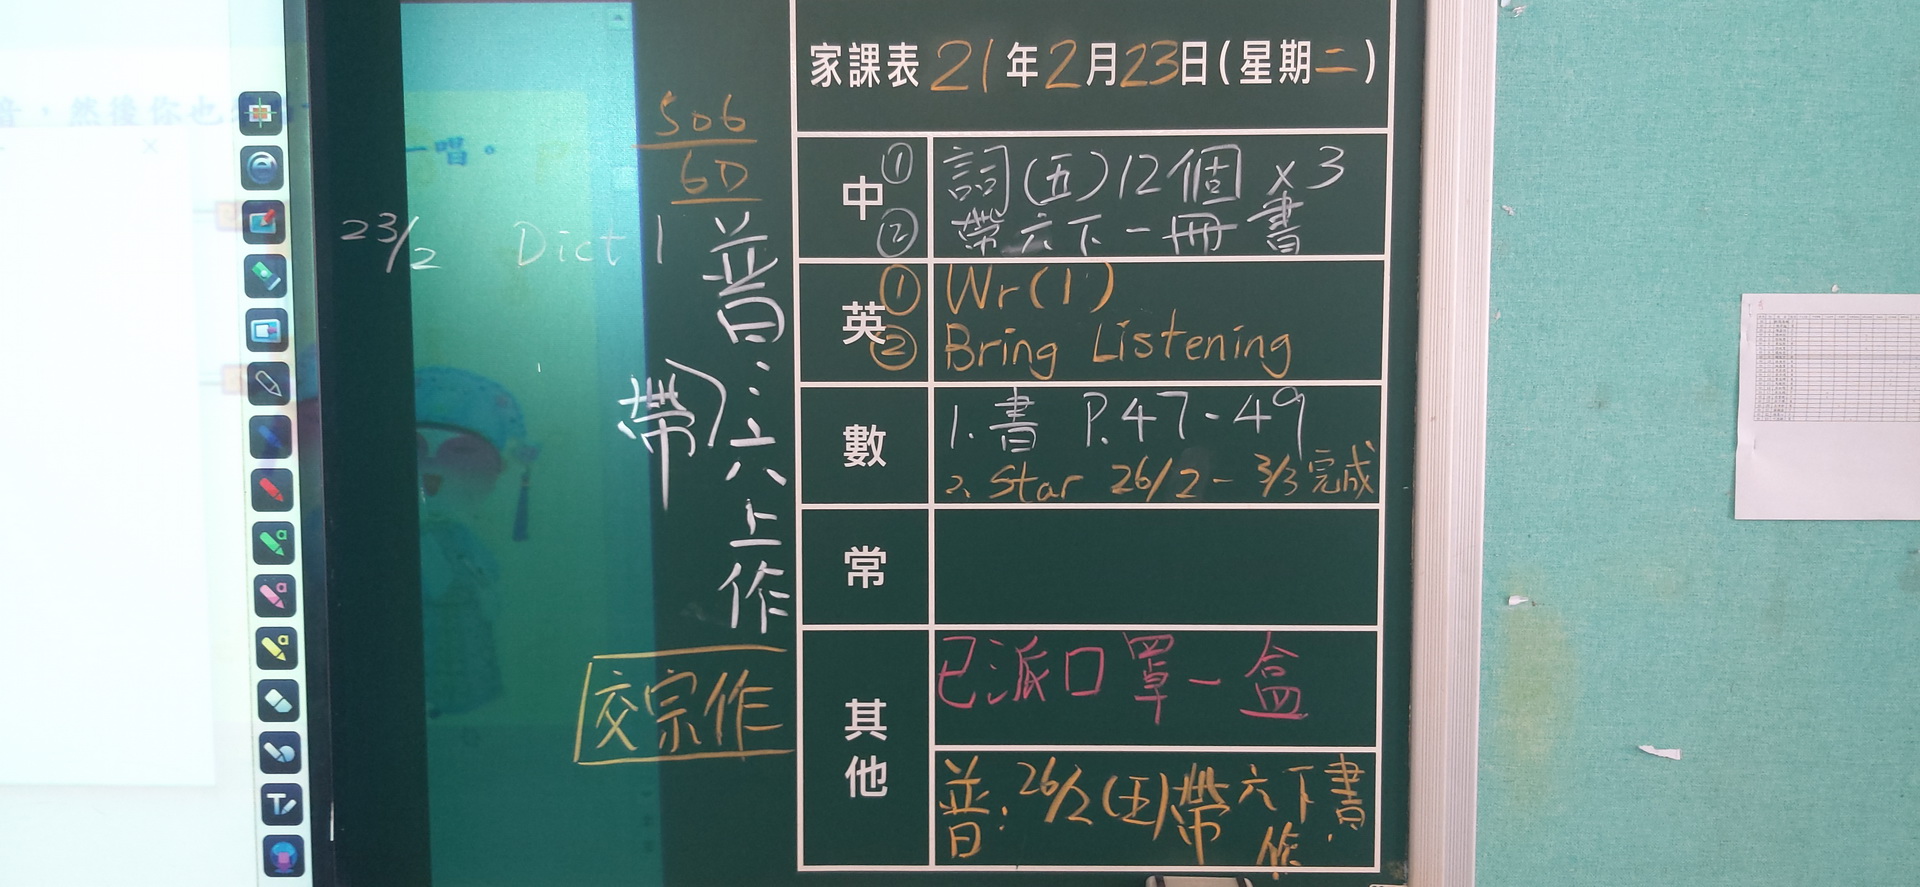 音，然後你也
一唱。
506
6D
23/2 Dict 1
普：六上作
帶
交宗作
家課表 21年2月23日(星期二)
中 ① 詞(五)12個 x3
② 帶六下一冊書
英 ① Wr(1)
② Bring Listening
數 1. 書 P.47-49
2. Star 26/2 - 3/3完成
常
其他 已派口罩一盒
普：26/2(五)帶六下書
作.